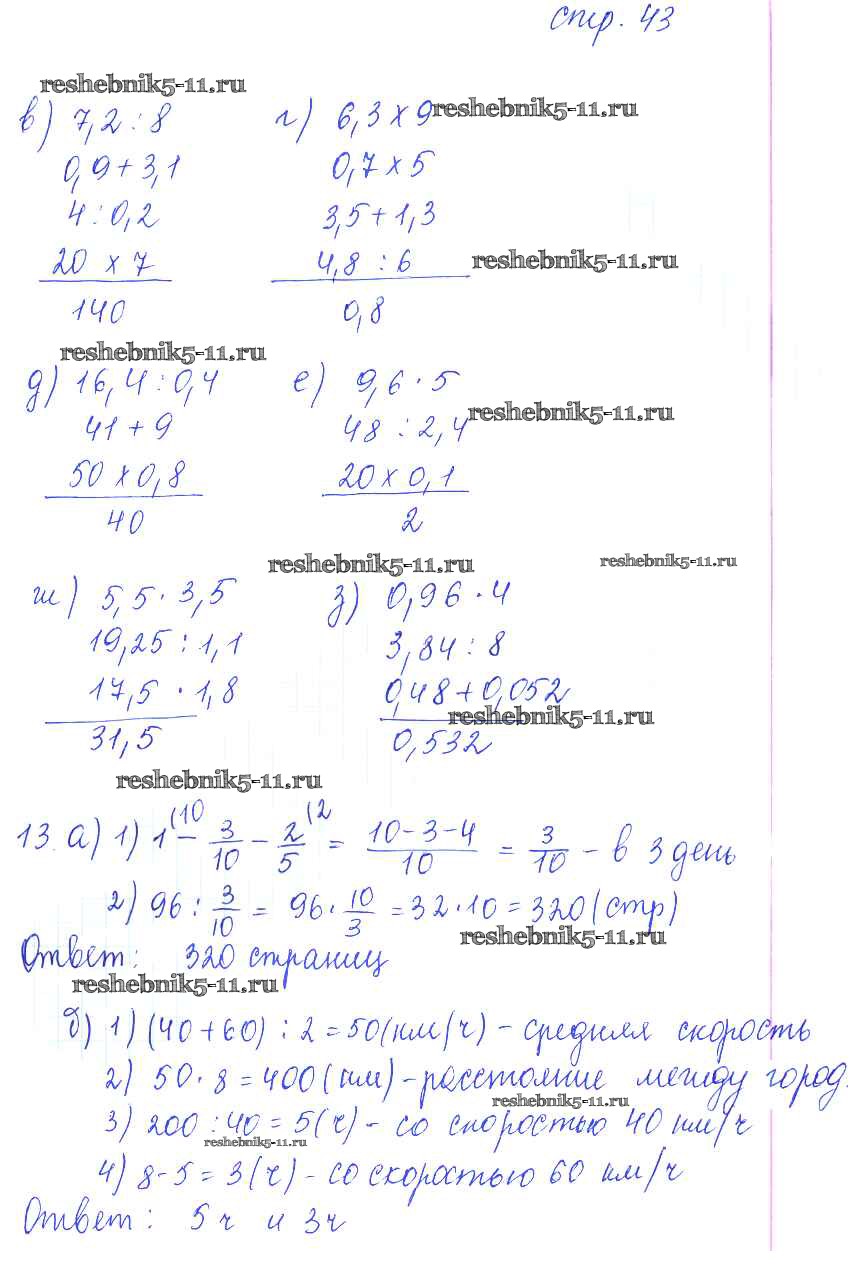 стр. 43
reshebnik5-11.ru
в) 7,2 : 8
0,9 + 3,1
4 : 0,2
20 х 7
140
г) 6,3 х 9
reshebnik5-11.ru
0,7 х 5
3,5 + 1,3
4,8 : 6
reshebnik5-11.ru
0,8
reshebnik5-11.ru
д) 16,4 : 0,4
41 + 9
50 х 0,8
40
е) 9,6 · 5
48 : 2,4
reshebnik5-11.ru
20 х 0,1
2
reshebnik5-11.ru
reshebnik5-11.ru
ж) 5,5 · 3,5
19,25 : 1,1
17,5 · 1,8
31,5
з) 0,96 · 4
3,84 : 8
0,48 + 0,052
reshebnik5-11.ru
0,532
reshebnik5-11.ru
13. а) 1) 1 (10 − 3/10 − 2/5 (2 = 10-3-4/10 = 3/10 − в 3 день
2) 96 : 3/10 = 96 · 10/3 = 32 · 10 = 320 (стр)
reshebnik5-11.ru
Ответ: 320 страниц
reshebnik5-11.ru
б) 1) (40 + 60) : 2 = 50 (км/ч) - средняя скорость
2) 50 · 8 = 400 (км) - расстояние между город.
reshebnik5-11.ru
3) 200 : 40 = 5 (ч) - со скоростью 40 км/ч
reshebnik5-11.ru
4) 8 - 5 = 3 (ч) - со скоростью 60 км/ч
Ответ: 5 ч и 3 ч